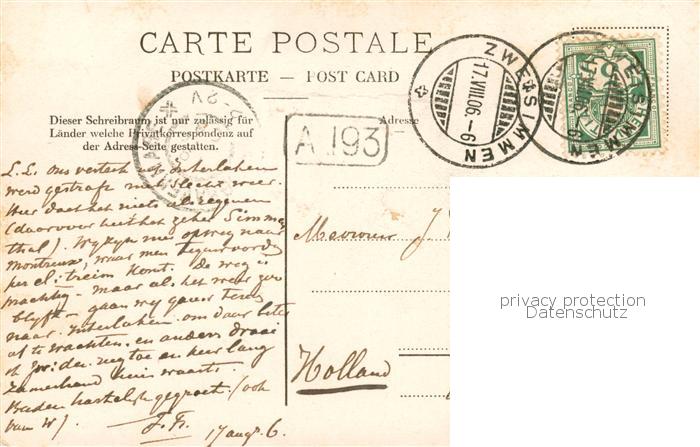 CARTE POSTALE
POSTKARTE — POST CARD
Dieser Schreibraum ist nur zulässig für
Länder welche Privatkorrespondenz auf
der Adress-Seite gestatten.
Adresse
ZWEISIMMEN
17.VIII.06.-6
ZWEISIMMEN
A 193
L.L. ons vertrek uit Interlaken
werd gestraft met slecht weer.
Hier doet het niets als regenen
(daarvoor heet het zeker Simmen
thal). Wy zyn nu op weg naar
Montreux, waar men tegenwoordig
per el: trein komt. De weg is
prachtig – maar als het weer zoo
blyft – gaan wy gauw terug
naar Interlaken om daar beter
af te wachten en anders
toe en heel lang
Zamerhand huis waarts.
hartelijk gegroet. (ook
van W).
17 aug. 6.
Mevrouw J.
Holland
privacy protection
Datenschutz